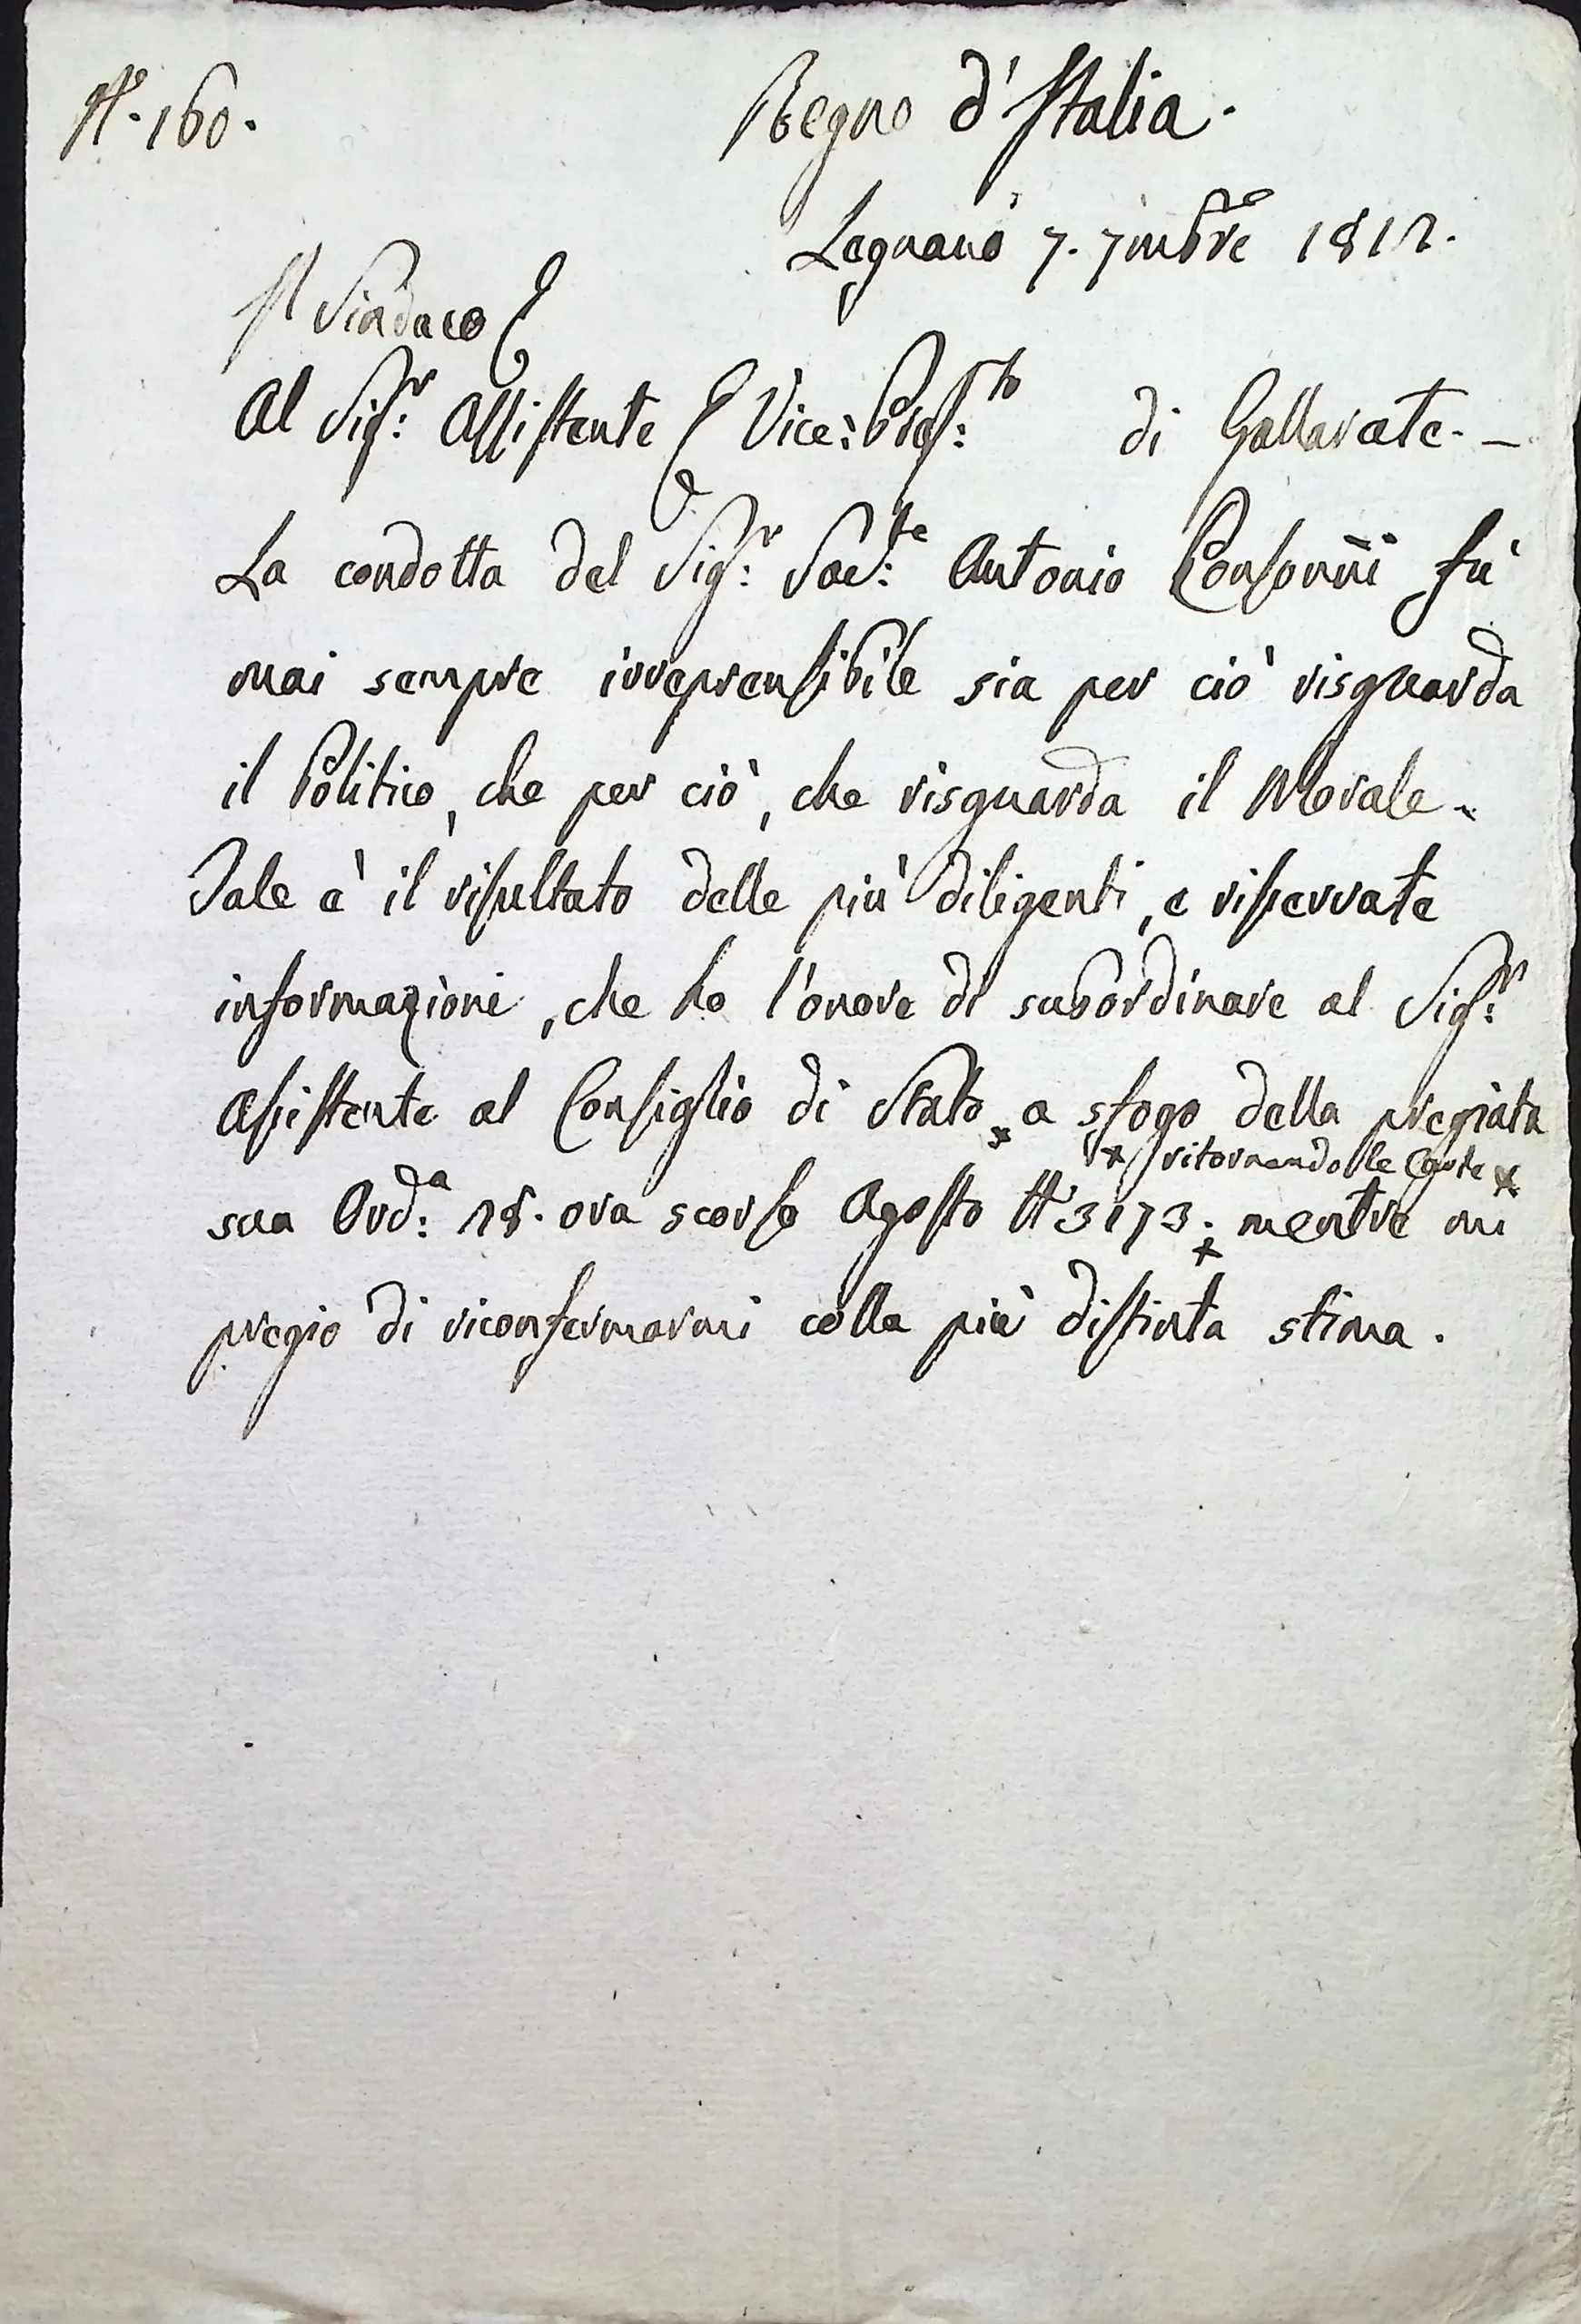 N.° 160.
Regno d'Italia.
Legnano 7. 7mbre 1812.
Il Sindaco
Al Sigr: Assistente Vice: Prefto: di Gallarate. -
La condotta del Sigr: Sacte: Antonio Consonni fù
mai sempre irreprensibile sia per ciò risguarda
il Politico, che per ciò, che risguarda il Morale -
Tale è il risultato delle più diligenti, e riservate
informazioni, che ho l'onore di subordinare al Sigr:
Assistente al Consiglio di Stato, a sfogo della pregiata
x ritornendole le Carte x
sua Orda: 18. ora scorso Agosto N 3173; mentre mi
x
pregio di riconfermarmi colla più distinta stima.